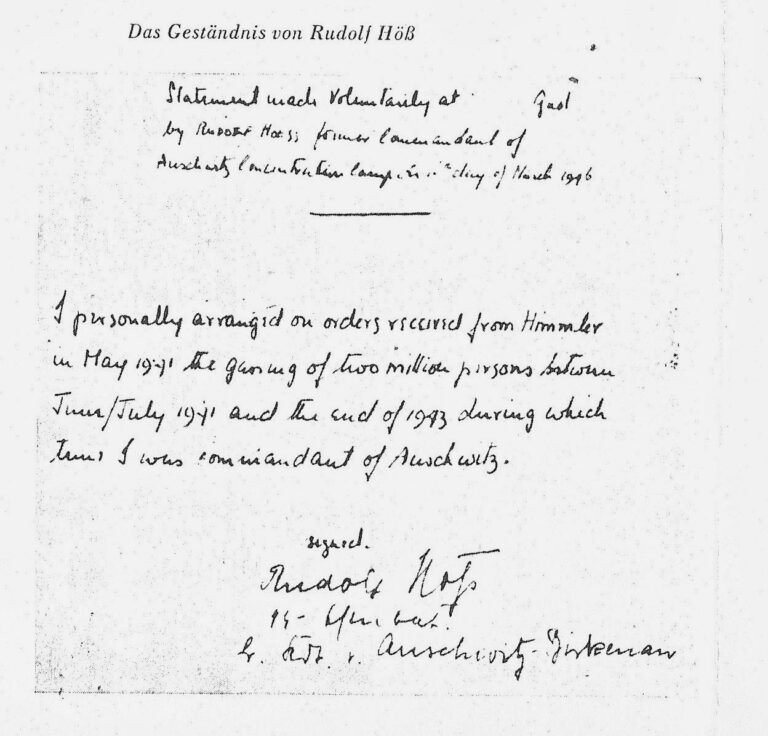 Das Geständnis von Rudolf Höß
Statement made voluntarily at Gaol
by RUDOLF HOESS former Commandant of
Auschwitz Concentration Camp on day of March 1946
I personally arranged on orders received from Himmler
in May 1941 the gassing of two million persons between
June/July 1941 and the end of 1943 during which
time I was commandant of Auschwitz.
signed.
Rudolf Höß
SS-
Auschwitz-Birkenau